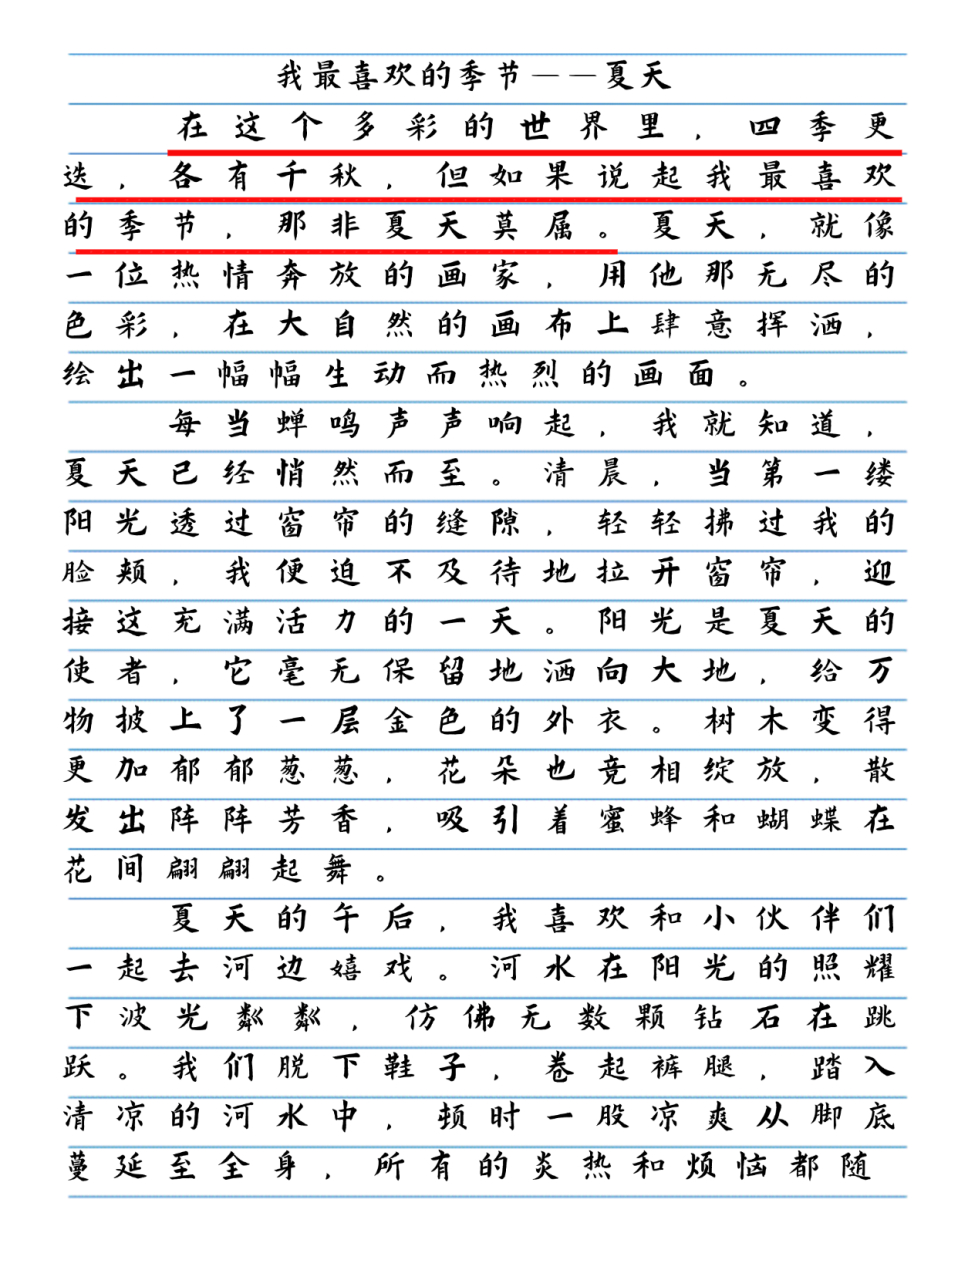 我最喜欢的季节——夏天
在这个多彩的世界里，四季更
迭，各有千秋，但如果说起我最喜欢
的季节，那非夏天莫属。夏天，就像
一位热情奔放的画家，用他那无尽的
色彩，在大自然的画布上肆意挥洒，
绘出一幅幅生动而热烈的画面。
每当蝉鸣声声响起，我就知道，
夏天已经悄然而至。清晨，当第一缕
阳光透过窗帘的缝隙，轻轻拂过我的
脸颊，我便迫不及待地拉开窗帘，迎
接这充满活力的一天。阳光是夏天的
使者，它毫无保留地洒向大地，给万
物披上了一层金色的外衣。树木变得
更加郁郁葱葱，花朵也竞相绽放，散
发出阵阵芳香，吸引着蜜蜂和蝴蝶在
花间翩翩起舞。
夏天的午后，我喜欢和小伙伴们
一起去河边嬉戏。河水在阳光的照耀
下波光粼粼，仿佛无数颗钻石在跳
跃。我们脱下鞋子，卷起裤腿，踏入
清凉的河水中，顿时一股凉爽从脚底
蔓延至全身，所有的炎热和烦恼都随